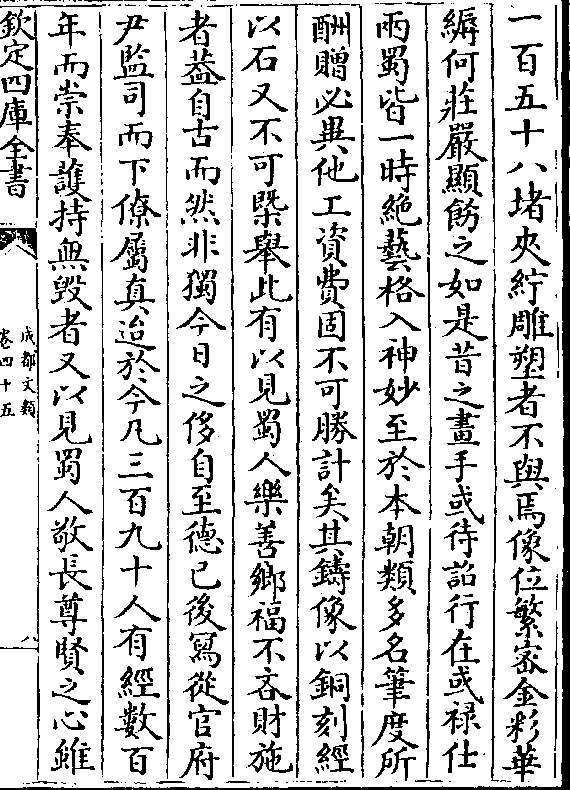 一百五十八堵夾紵雕塑者不與焉像位繁密金彩華
縟何莊嚴顯飭之如是昔之畫手或待詔行在或祿仕
兩蜀皆一時絶藝格入神妙至於本朝類多名筆度所
酬贈必異他工資費固不可勝計矣其鑄像以銅刻經
以石又不可槩舉此有以見蜀人樂善鄉福不吝財施
者葢自古而然非獨今日之侈自至德已後寫從官府
尹監司而下僚屬真迨於今凡三百九十人有經數百
年而崇奉護持無毀者又以見蜀人敬長尊賢之心雖
欽定四庫全書
成都文類
卷四十五
八